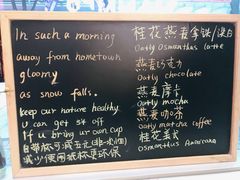 In such a morning
away from hometown
gloomy
as snow falls.
keep our nature healthy.
u can get 5* off
If u bring ur own cup
自带杯另减五元(非一次性)
减少使用纸杯更环保
桂花燕麦拿铁/澳白
Oatly Osmanthus latte
燕麦巧克力
Oatly chocolate
燕麦摩卡
Oatly mocha
燕麦抹茶
Oatly matcha coffee
桂花美式
Osmanthus Americano